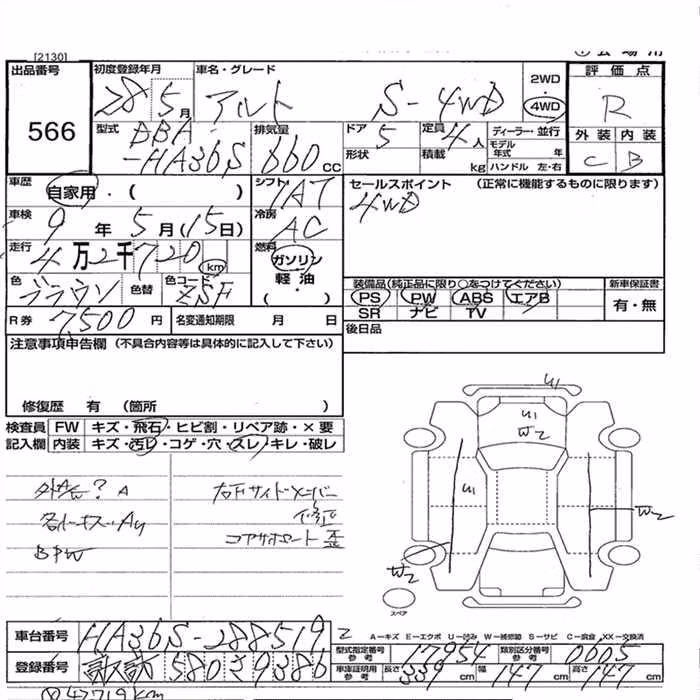 [2130]
出品番号 566
初度登録年月 28 5月
車名・グレード アルト S-4WD
2WD 4WD
評価点 R
外装 C 内装 B
型式 DBA-HA36S
排気量 660 cc
ドア 5 形状
定員 4人 積載 kg
ディーラー・並行
モデル年式 年
ハンドル 左・右
車歴 自家用・( )
シフト IAT
セールスポイント (正常に機能するものに限ります)
4WD
車検 9年 5月(15日)
冷房 AC
走行 4万2千720 km
燃料 ガソリン・軽油・( )
色 ブラウン 色替 色コード ZSF
装備品(純正品に限り○をつけてください)
PS PW ABS エアB
SR ナビ TV
新車保証書 有・無
R券 7,500円 名変通知期限 月 日
後日品
注意事項申告欄 (不具合内容等は具体的に記入して下さい)
修復歴 有 (箇所 )
検査員 FW キズ・飛石・ヒビ割・リペア跡・×要
記入欄 内装 キズ・汚レ・コゲ・穴・スレ・キレ・破レ
外AW? A
各所キズ・AU
BPW
右Fサイドメンバー
修正
コアサポート 歪
U1
U1
W2
U1
W2
W2
スペア
車台番号 HA36S-288519
2
A-キズ E-エクボ U-凹み W-補修跡 S-サビ C-腐食 XX-交換済
型式指定番号 参考 17954 類別区分番号 参考 0605
登録番号 諏訪 580さ9386
車庫証明用 参考 長さ 339cm 幅 147cm 高さ 147cm
42719km